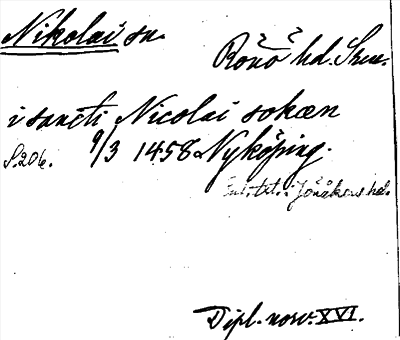 Nikolai sn.
Rönö hd. Skne.
i sancti Nicolai sokæn
S. 206. 9/3 1458 Nyköping.
Jönåkers hd.
Dipl. norv. XVI.